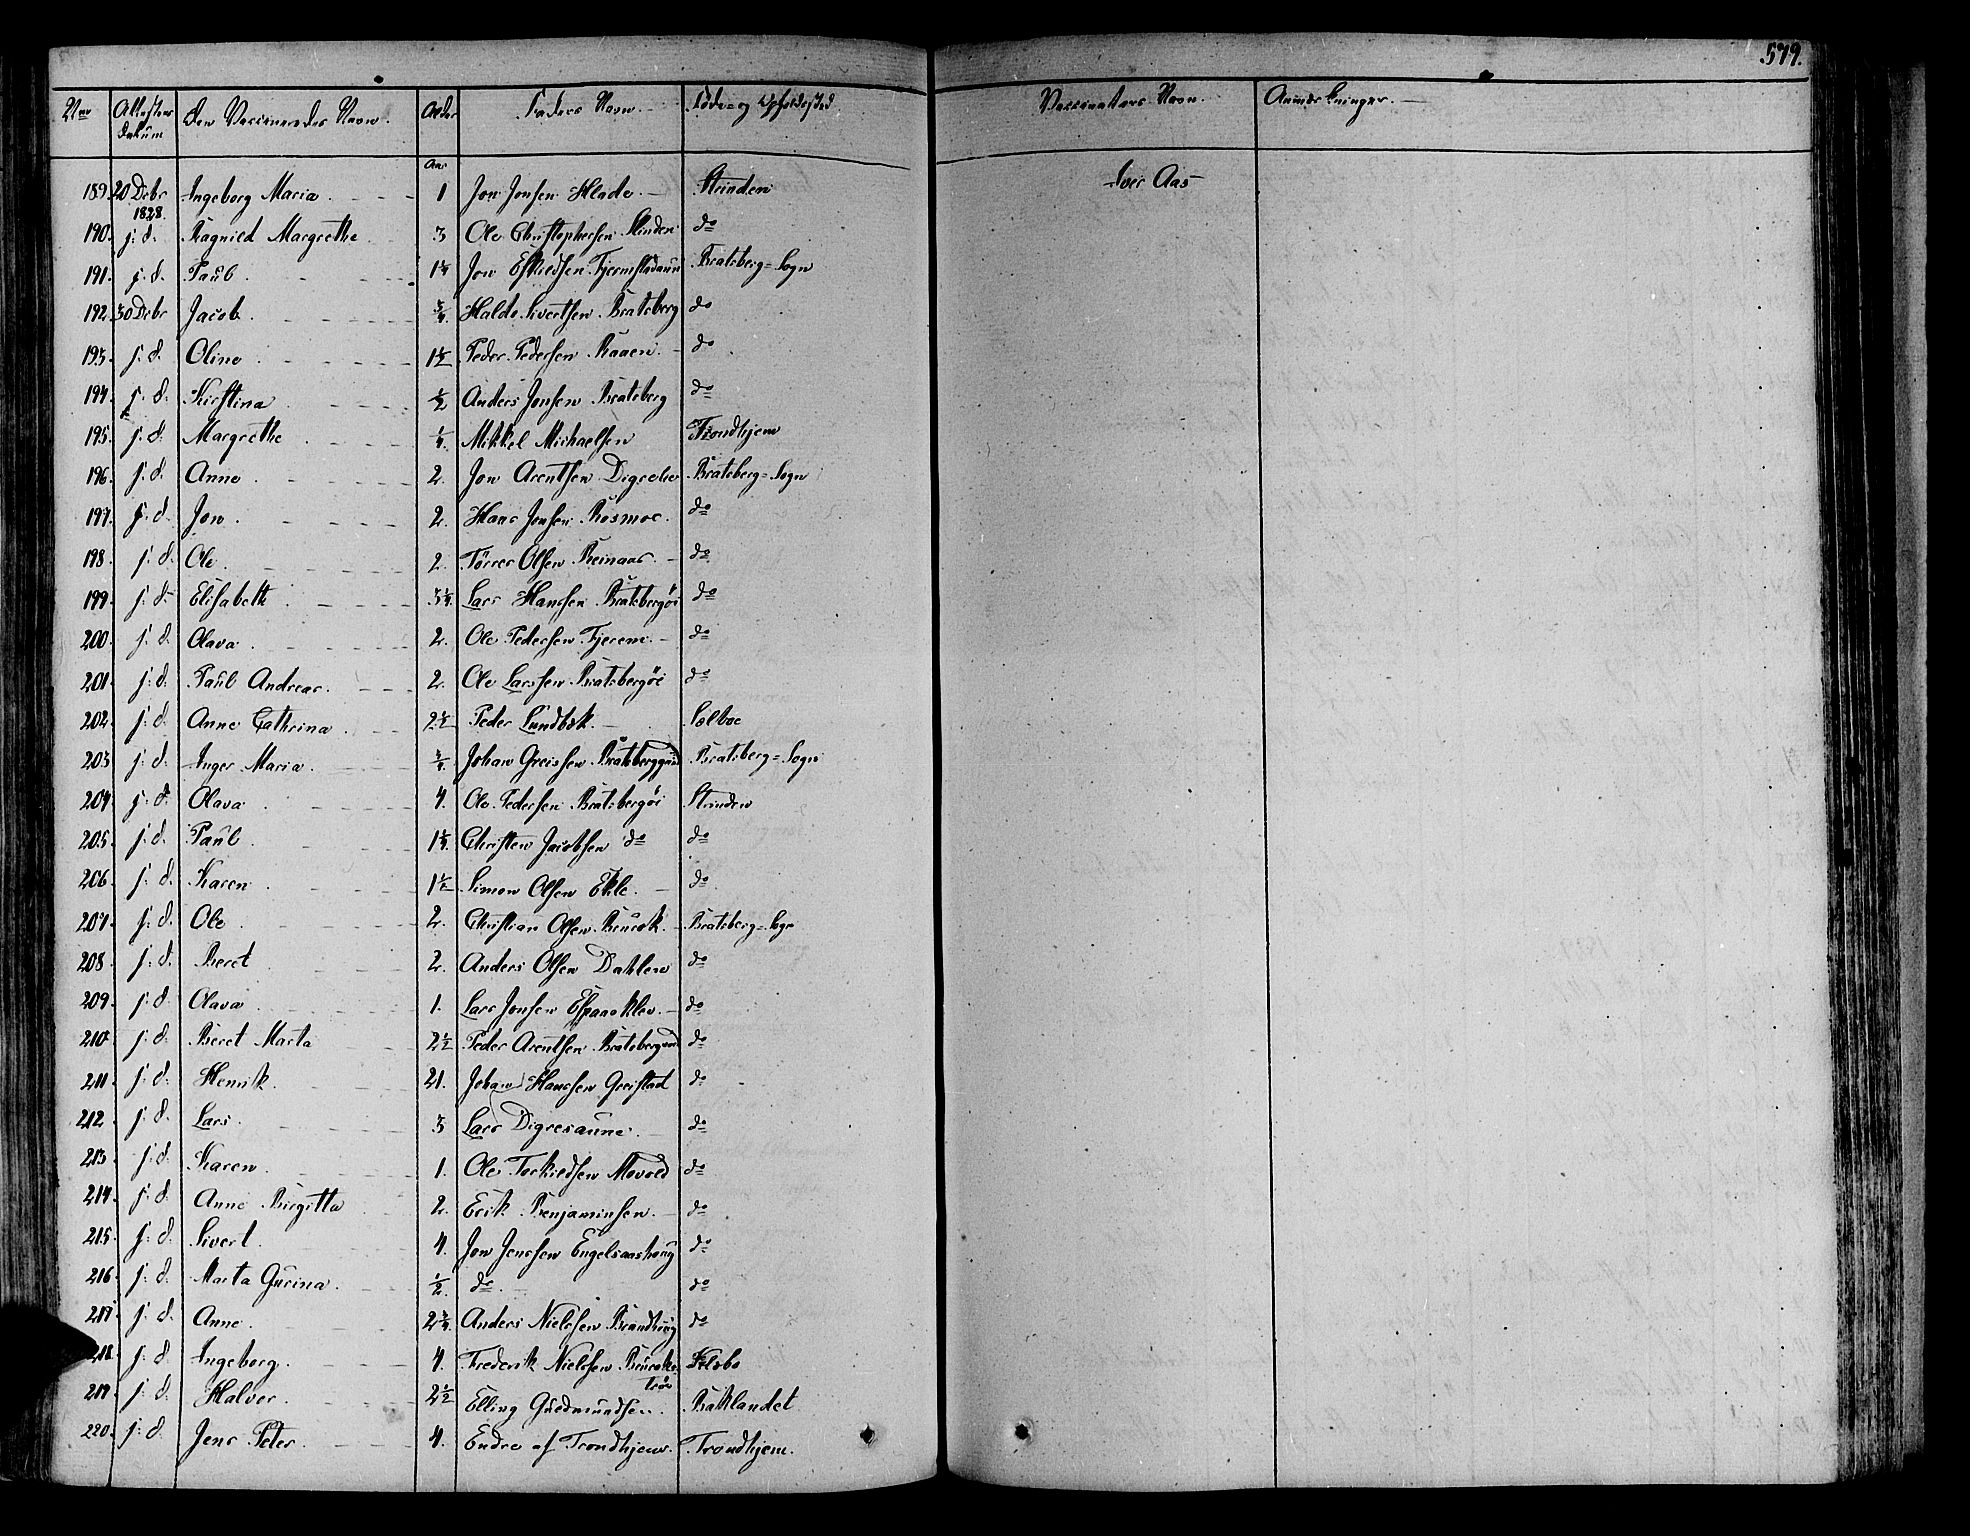 579.
Nro Attestens datum Den Vaccineredes Navn. Alder Faders Navn. Føde- og Opholdssted Vaccinateurs Navn. Anmærkninger.
Aar
189. 20 Decbr 1828. Ingeborg Maria 1 Jon Jonsen Hlade. Strinden Iver Aas
190. s: d. Ragnild Margrethe 3 Ole Christophersen Strinden do
191. s: d. Paul Jon Eskildsen Tjermstadaun Bratsberg=Sogn
192. 30 Decbr Jacob 3/4 Haldo Sivertsen Bratsberg do
193. s: d. Oline 1 1/2 Peder Pedersen Raaen. do
194. s: d. Kirstina 1/2 Anders Jonsen Bratsberg do
195. s: d. Margrethe 1/4 Mikkel Michaelsen Trondhjem
196. s: d. Anne 2. Jon Arentsen Digrelie Bratsberg=Sogn
197. s: d. Jon 2. Hans Jonsen Rosmoe. do
198. s: d. Ole 2. Tørres Olsen Reinaas do
199. s: d. Elisabeth 3 1/4 Lars Hansen Bratsbergøi do
200. s: d. Olava 2. Ole Pedersen Tjerem do
201. s: d. Paul Andreas. 2. Ole Larssen Bratsbergøi do
202. s: d. Anne Cathrina 2 1/2 Peder Lundbæk Sælboe
203. s: d. Inger Maria. Johan Greissen Bratsberggaard Bratsberg=Sogn
204. s: d. Olava 4. Ole Pedersen Bratsbergøi Strinden
205. s: d. Paul Christen Jacobsen do do
206. s: d. Karen 1 1/2 Simon Olsen Ekle. do
207. s: d. Ole 2. Christian Olsen Brurok. Bratsberg=Sogn
208. s: d. Beret 2. Anders Olsen Dahlen do
209. s: d. Olava 1. Lars Jonsen Espaaklev. do
210. s: d. Beret Marta 2 1/2 Peder Arentsen Bratsberg do
211 s: d. Henrik. 21. Johan Hansen Greistad do
212 s: d. Lars. 3 Lars Digresaune. do
213. s: d. Karen 1. Ole Torkildsen Movold do
214. s: d. Anne Birgitta 2. Erik Benjaminsen. do
215. s: d. Sivert. 4. Jon Jenssen Engelsaashoug do
216. s: d. Marta Gurina. 1/2. do do
217. s: d. Anne. 2 3/4 Anders Nielssen Brandhoug do
218. s: d. Ingeborg. 4. Frederik Nielssen Bruroks trøe Klæbo
219. s: d. Halvor. 2 1/2 Elling Gudmundsen. Baklandet
220. s: d. Jens Peter. 4. Endre af Trondhjem. Trondhjem.